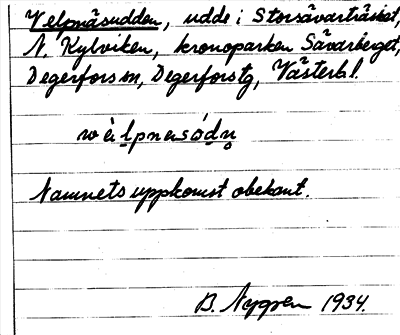 Velpnäsudden, udde i Storsävarträsket,
N. Kylviken, kronoparken Sävarberget,
Degerfors sn, Degerfors tg, Västerb. l.
wèlpnasódn̥
Namnets uppkomst obekant.
B. Nygren 1934.